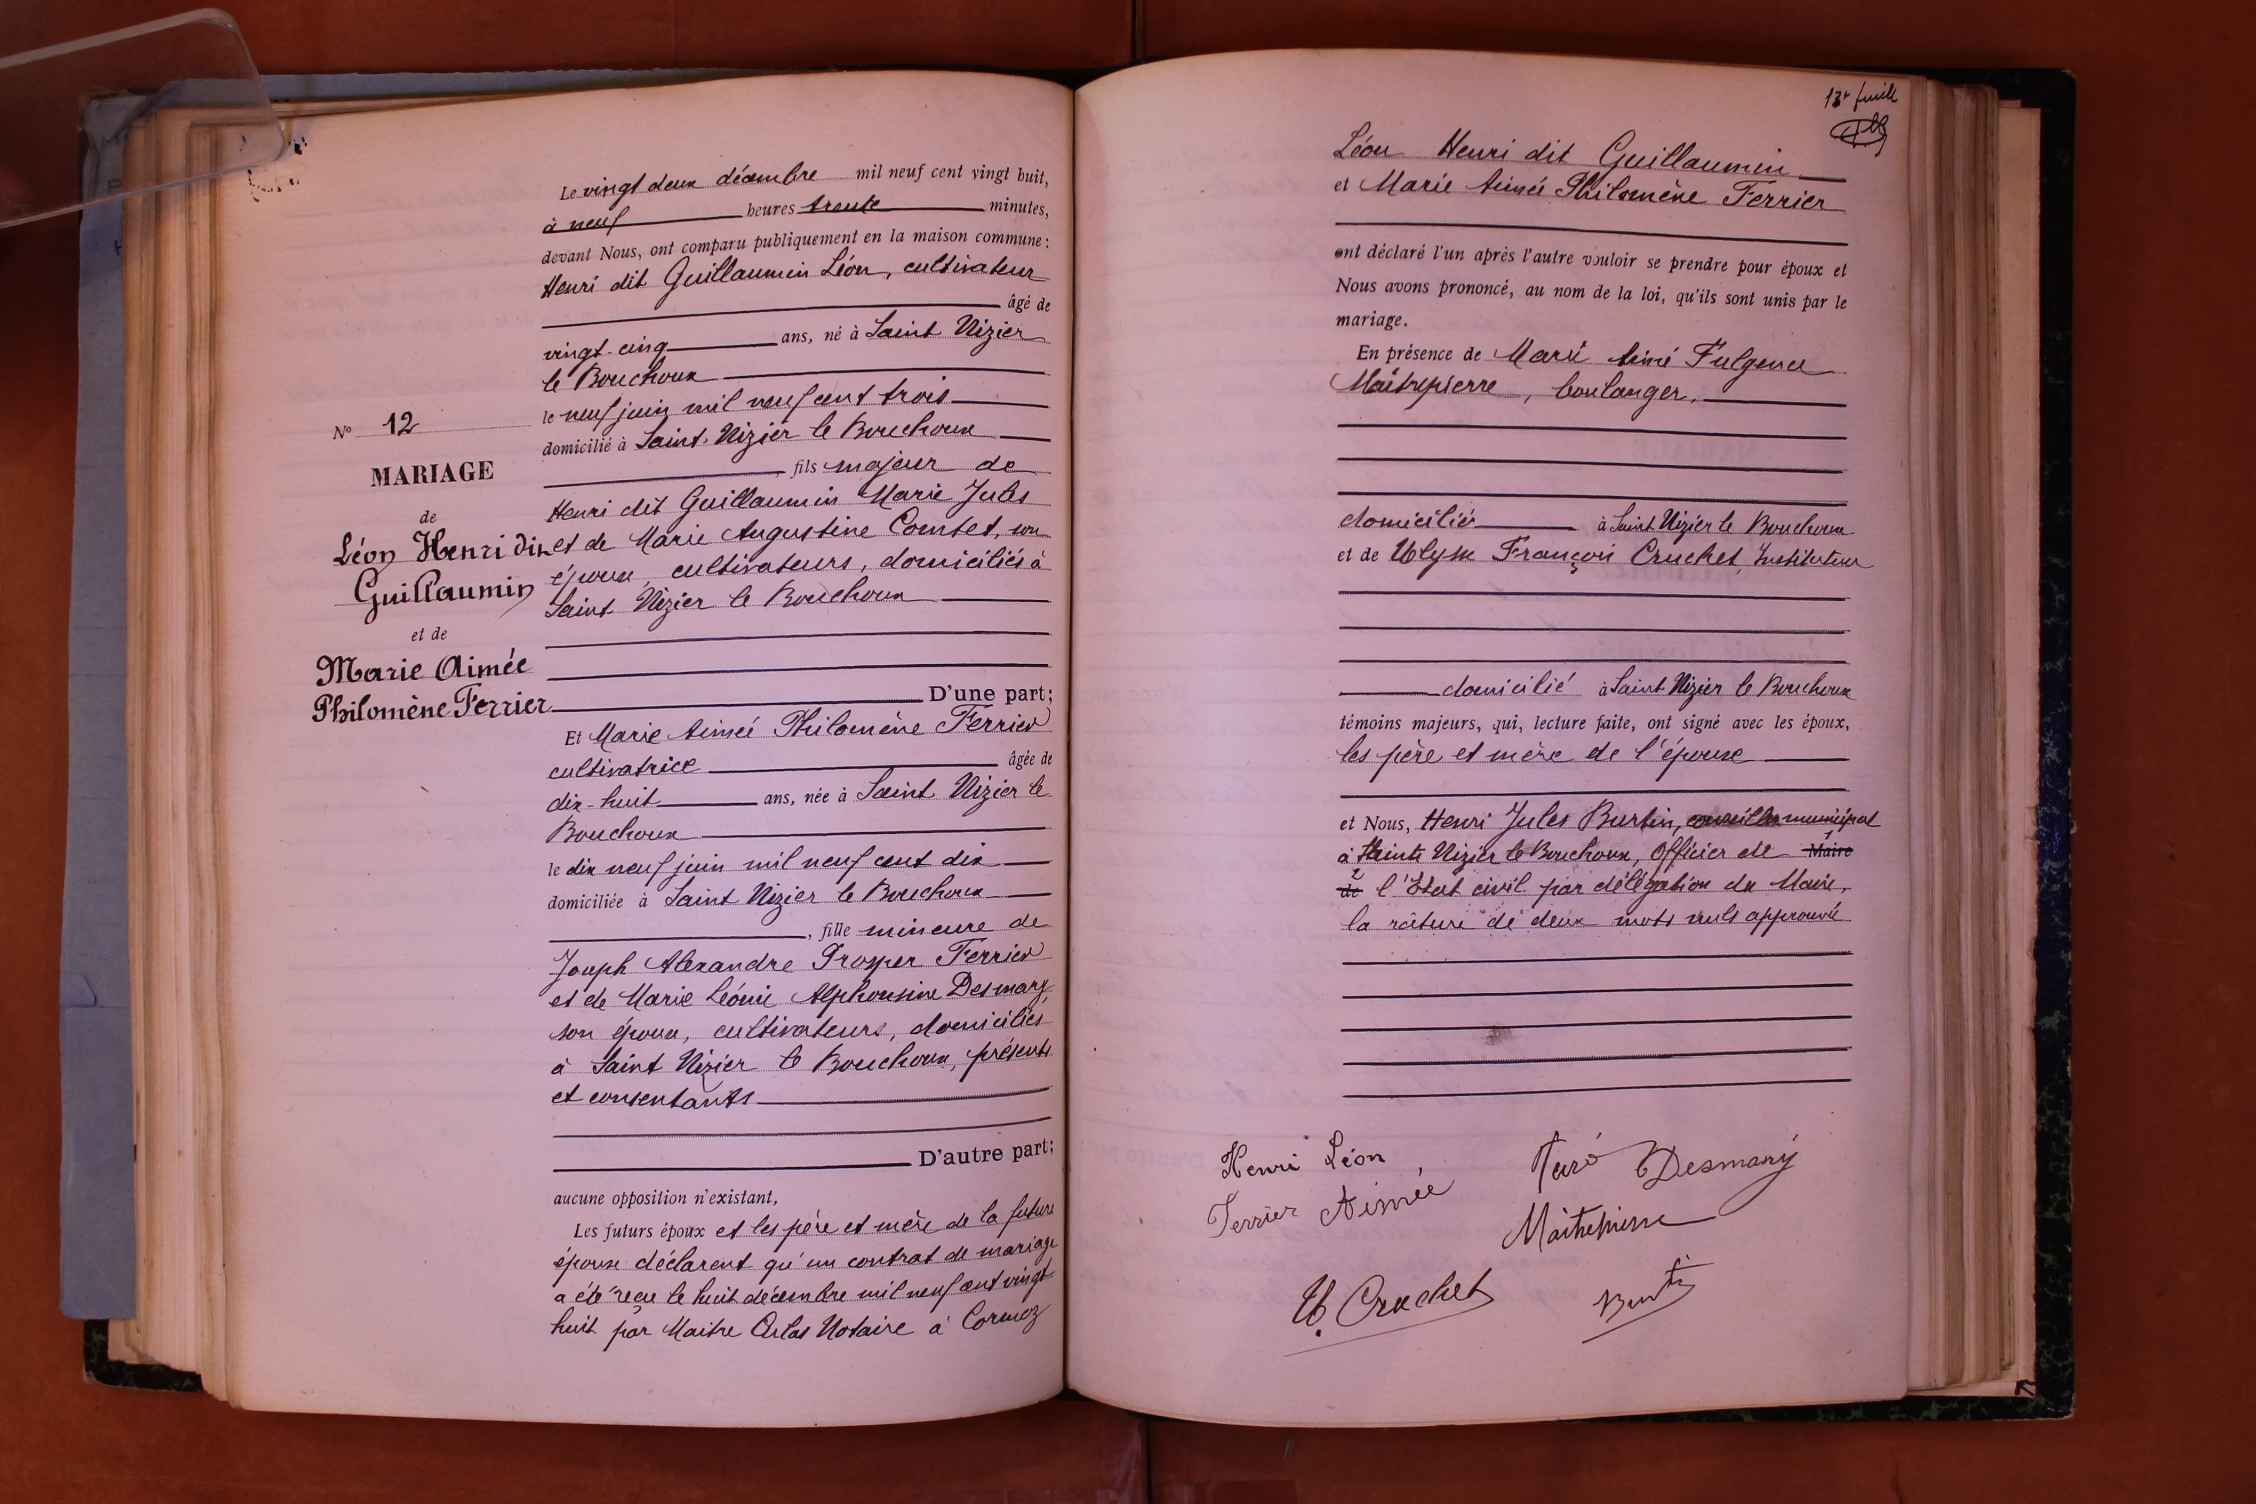 N° 12
MARIAGE
de
Léon Henri dit
Guillaumin
et de
Marie Aimée
Philomène Ferrier
Le vingt deux décembre mil neuf cent vingt huit,
à neuf heures trente minutes,
devant Nous, ont comparu publiquement en la maison commune :
Henri dit Guillaumin Léon, cultivateur
âgé de
vingt-cinq ans, né à Saint Nizier
le Bouchoux
le neuf juin mil neuf cent trois
domicilié à Saint-Nizier le Bouchoux
fils majeur de
Henri dit Guillaumin Marie Jules
et de Marie Augustine Combet, son
épouse, cultivateurs, domiciliés à
Saint Nizier le Bouchoux
D'une part;
Et Marie Aimée Philomène Ferrier
cultivatrice âgée de
dix-huit ans, née à Saint Nizier le
Bouchoux
le dix neuf juin mil neuf cent dix
domiciliée à Saint Nizier le Bouchoux
, fille mineure de
Joseph Alexandre Prosper Ferrier
et de Marie Léonie Alphonsine Desmary,
son épouse, cultivateurs, domiciliés
à Saint Nizier le Bouchoux, présents
et consentants
D'autre part;
aucune opposition n'existant,
Les futurs époux et les père et mère de la future
épouse déclarent qu'un contrat de mariage
a été reçu le huit décembre mil neuf cent vingt
huit par Maitre Notaire à Cormoz
13e feuille
Léon Henri dit Guillaumin
et Marie Aimée Philomène Ferrier
ont déclaré l'un après l'autre vouloir se prendre pour époux et
Nous avons prononcé, au nom de la loi, qu'ils sont unis par le
mariage.
En présence de Marie Aimé Fulgence
Maîtrepierre, boulanger,
domicilié à Saint Nizier le Bouchoux
et de Ulysse François Cruchet, Instituteur
domicilié à Saint Nizier le Bouchoux
témoins majeurs, qui, lecture faite, ont signé avec les époux,
les père et mère de l'épouse
et Nous, Henri Jules Burtin, conseiller municipal
à Saint Nizier le Bouchoux, Officier de Maire
de l'Etat civil par délégation du Maire,
la râture de deux mots nuls approuvée
Henri Léon
Desmary
Ferrier Aimée
Maitrepierre
U. Cruchet
Burtin